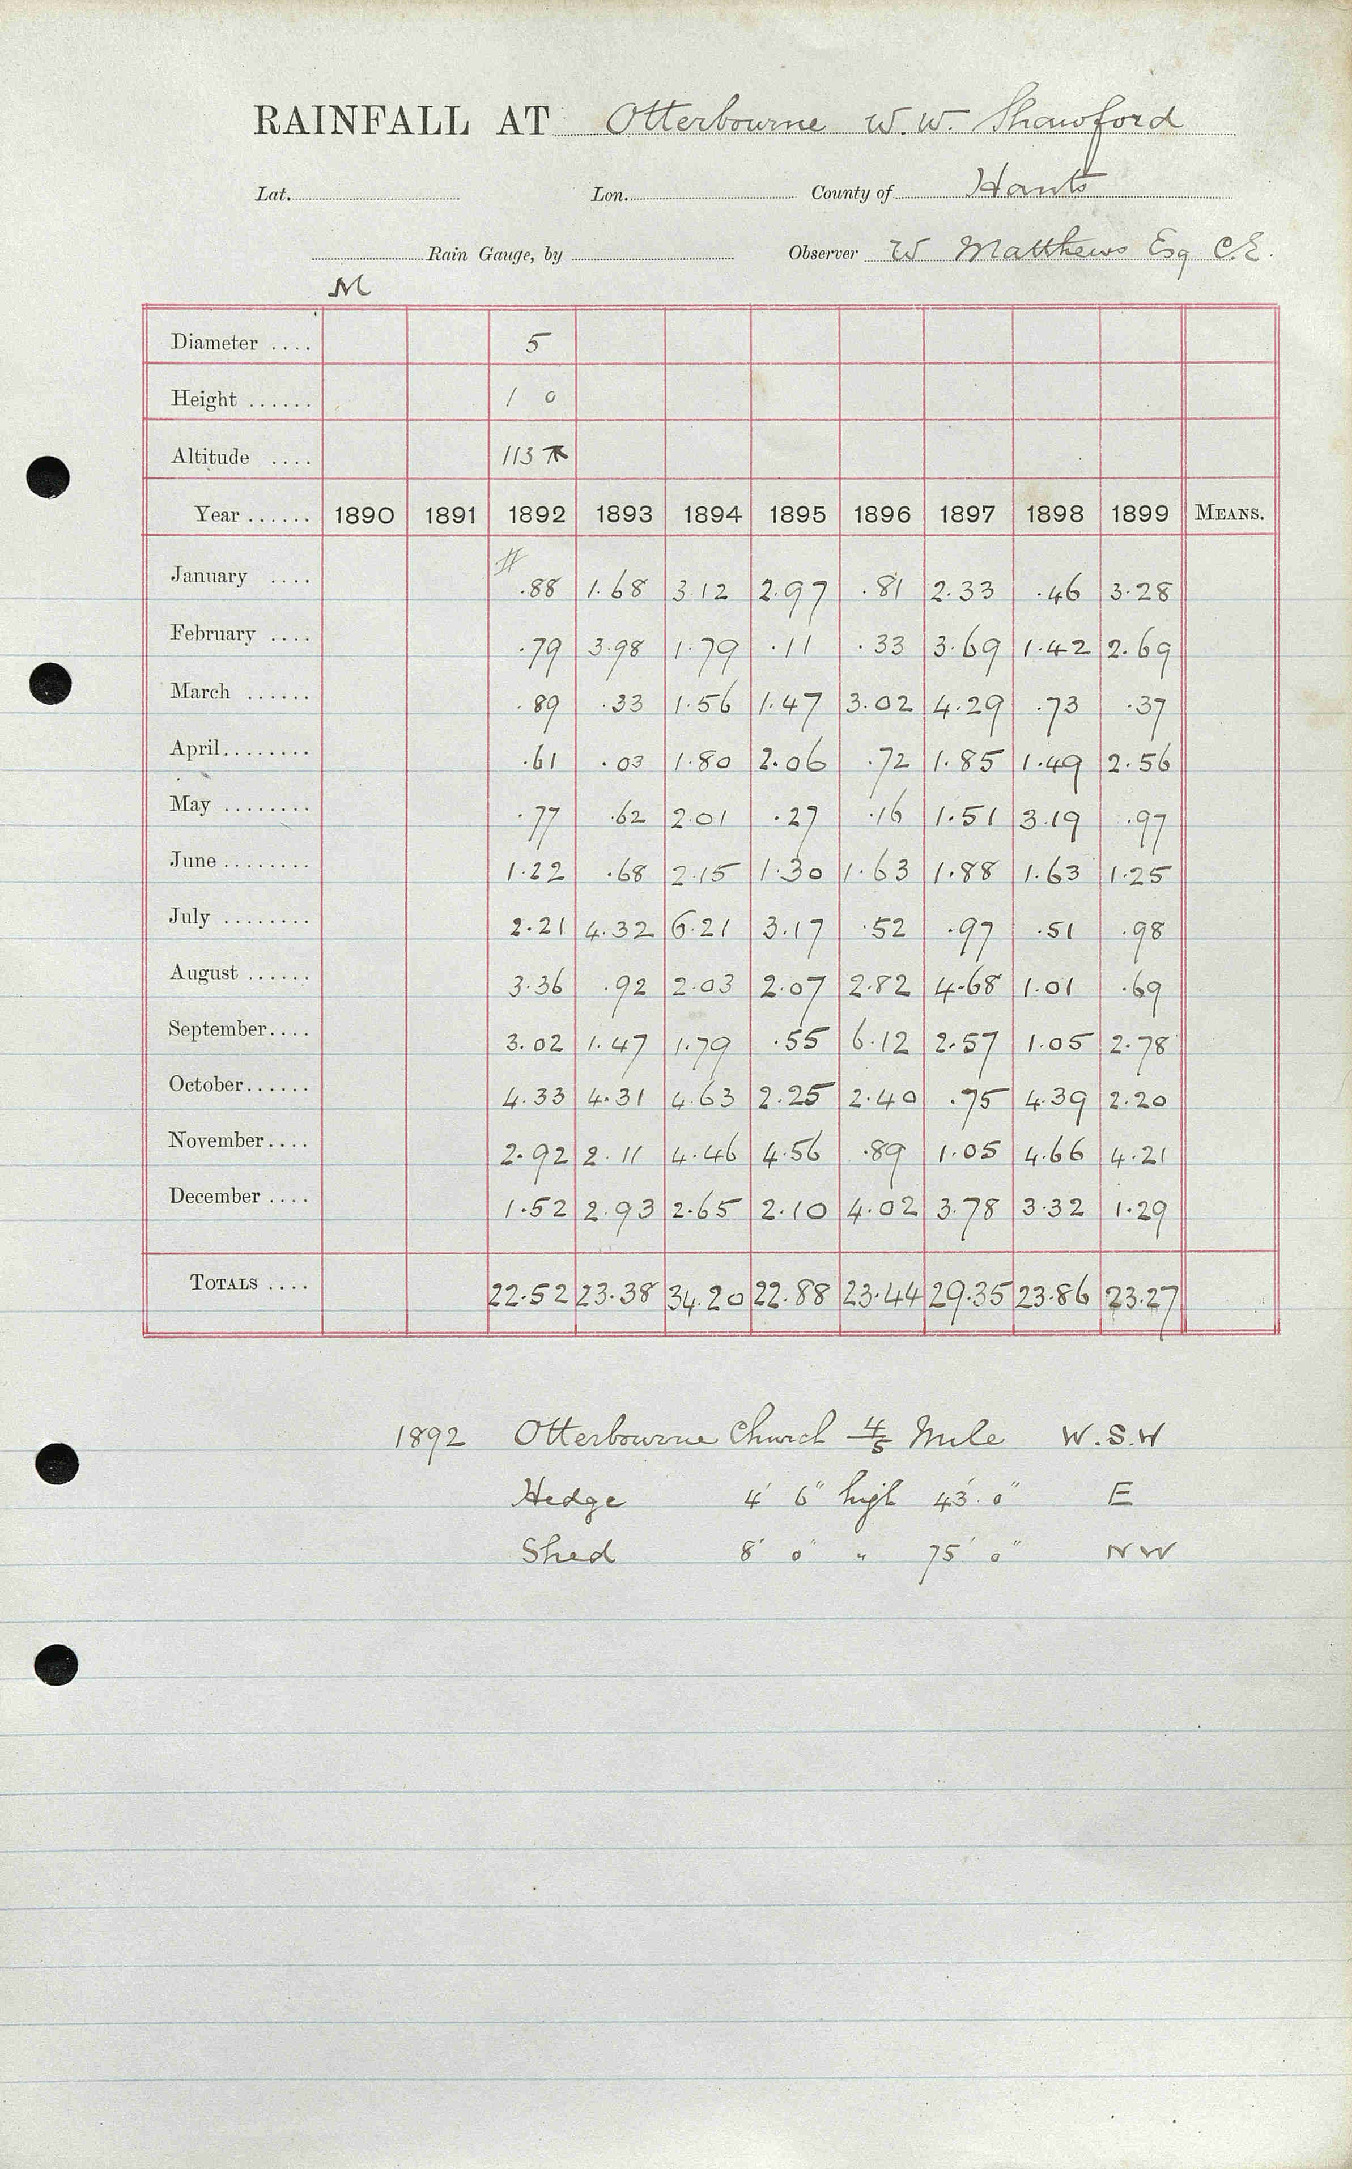 RAINFALL AT Otterbourne W.W. Shawford
Lat. Lon. County of Hants
Rain Gauge, by Observer W Matthews Esq C.E.
M
Diameter .... 5
Height ...... 1 0
Altitude .... 113
Year ...... 1890 1891 1892 1893 1894 1895 1896 1897 1898 1899 MEANS.
#
January .... .88 1.68 3.12 2.97 .81 2.33 .46 3.28
February .... .79 3.98 1.79 .11 .33 3.69 1.42 2.69
March ...... .89 .33 1.56 1.47 3.02 4.29 .73 .37
April........ .61 .03 1.80 2.06 .72 1.85 1.49 2.56
May ........ .77 .62 2.01 .27 .16 1.51 3.19 .97
June ........ 1.22 .68 2.15 1.30 1.63 1.88 1.63 1.25
July ........ 2.21 4.32 6.21 3.17 .52 .97 .51 .98
August ...... 3.36 .92 2.03 2.07 2.82 4.68 1.01 .69
September.... 3.02 1.47 1.79 .55 6.12 2.57 1.05 2.78
October...... 4.33 4.31 4.63 2.25 2.40 .75 4.39 2.20
November.... 2.92 2.11 4.46 4.56 .89 1.05 4.66 4.21
December .... 1.52 2.93 2.65 2.10 4.02 3.78 3.32 1.29
TOTALS .... 22.52 23.38 34.20 22.88 23.44 29.35 23.86 23.27
1892 Otterbourne Church 4/5 Mile W.S.W
Hedge 4' 6" high 43'. 0" E
Shed 8' 0" " 75' 0" NW